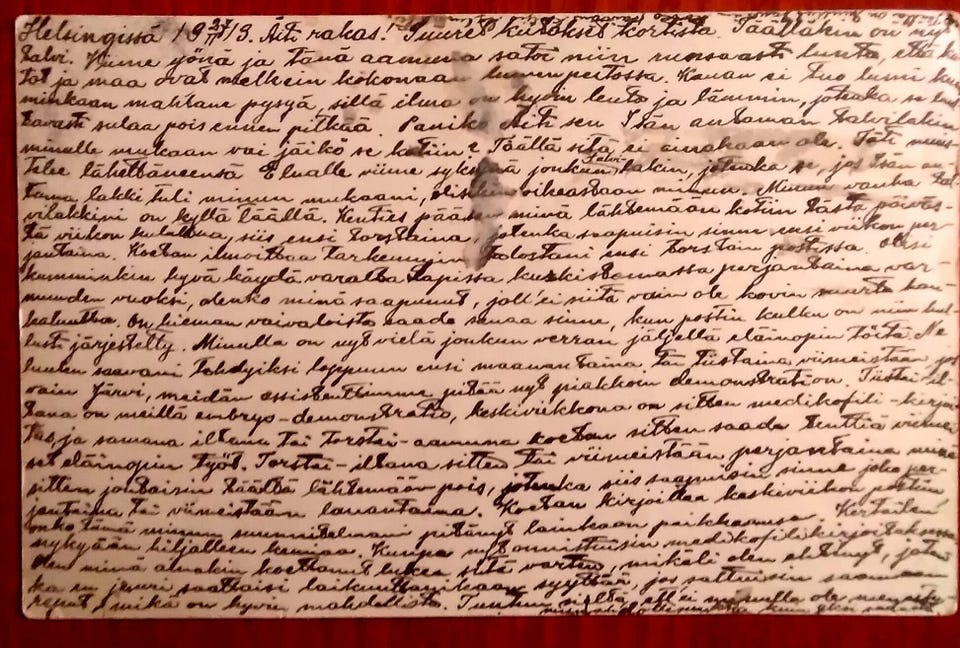 Helsingissä 19 27/11 13. Äiti rakas! Suuret kiitokset kortista. Täälläkin on nyt
talvi. Viime yönä ja tänä aamuna satoi niin runsaasti lunta, että
ja maa ovat melkein kokonaan lumen peitossa. Kauan ei tuo lumi
minkään mahtane pysyä, sillä ilma on hyvin leuto ja lämmin, jotenka se
sulaa pois ennen pitkää. Paniko Äiti sen Isän antaman talvilakin
minulle mukaan vai jäikö se kotiin? Täällä sitä ei ainakaan ole. Täti
telee lähettäneensä viime syksynä jonkun talvilakin, jotenka se, jos Isän
tama lakki tuli minun mukaani, oikeastaan minun. Minun vanha
vilakkini on kyllä täällä. Kenties pääsen minä lähtemään kotiin tästä päiväs-
tä viikon kuluttua, siis ensi torstaina, jotenka saapuisin sinne ensi viikon per-
jantaina. Koetan ilmoittaa tarkemmin tulostani ensi torstain postissa. Olisi
kumminkin hyvä käydä varalta perjantaina var-
muuden vuoksi, olenko minä saapunut, joll'ei siitä vain ole kovin suurta
haluutta. On hieman vaivaloista saada sanaa sinne, kun postin kulku on niin
lusti järjestetty. Minulla on nyt vielä jonkun verran jäljellä eläinopin töitä. Ne
luulen saavani tehdyiksi loppuun ensi maanantaina tai tiistaina viimeistään, jos
vain Järvi, meidän assistenttimme, pitää nyt piakkoin demonstration. Tiistai-il-
tana on meillä embryo-demonstratio, keskiviikkona on sitten medikofiili-kirjoi-
tus, ja samana iltana tai torstai-aamuna koetan sitten saada tenttiä viimei-
set eläinopin työt. Torstai-iltana sitten tai viimeistään perjantaina
sitten joutaisin täältä lähtemään pois, jotenka siis saapuisin sinne joko per-
jantaina tai viimeistään lauantaina. Koetan kirjoittaa keskiviikon postiin
onko tämä minun suunnitelmani pitänyt lainkaan paikkaansa. Kertailen
nykyään hiljalleen kemiaa. Kunpa nyt onnistuisin medikofiilikirjoituksessa
Olen minä ainakin koettanut lukea sitä varten, mikäli olen ehtinyt,
ka en juuri saattaisi laiskuuttani syyttää, jos sattuisin saamaan
reput, mikä on hyvin mahdollista. Tuntuu siltä, ett'ei minulla ole